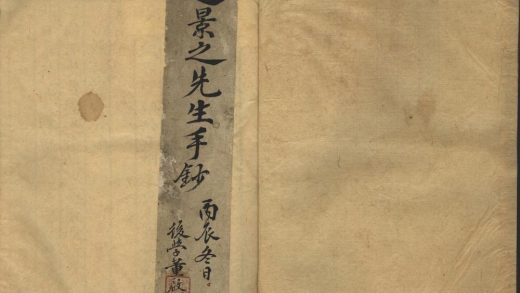 景之先生手鈔
丙辰冬日
後學董